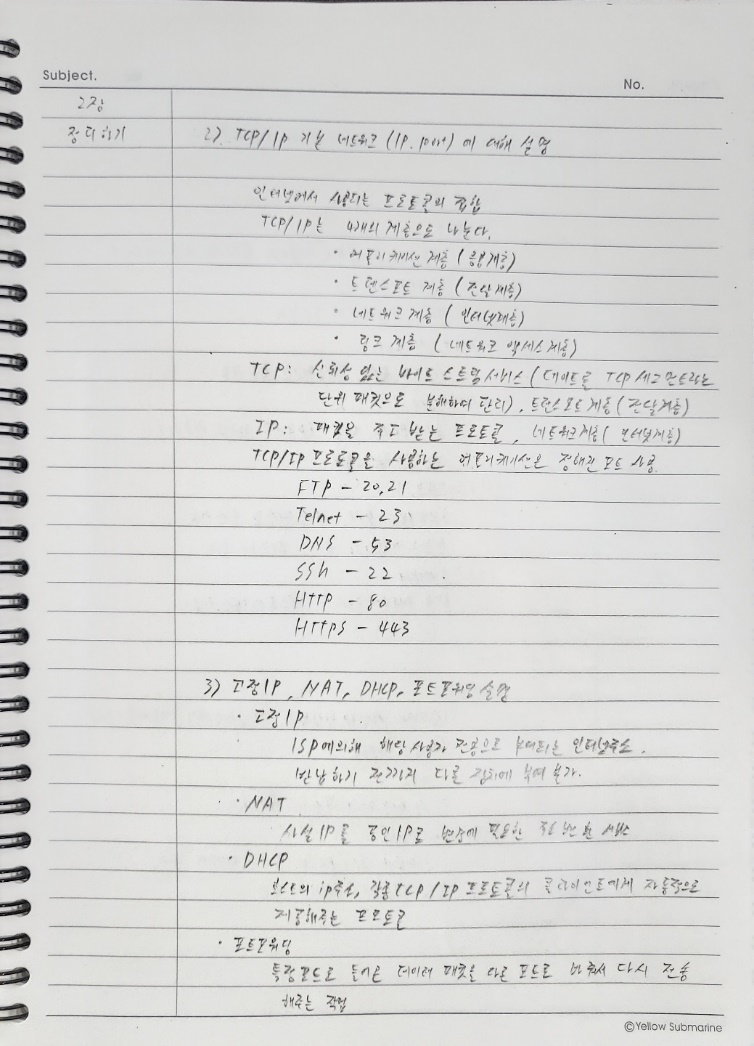 Subject.
No.
2장
정리하기
2). TCP/IP 기본 네트워크 (IP. port) 에 대해 설명
인터넷에서 사용되는 프로토콜의 집합
TCP/IP는 4개의 계층으로 나눈다.
· 어플리케이션 계층 (응용계층)
· 트랜스포트 계층 (전달계층)
· 네트워크 계층 (인터넷계층)
· 링크 계층 (네트워크 액세스 계층)
TCP: 신뢰성 있는 바이트 스트림 서비스 (데이트를 TCP 세그먼트라는
단위 패킷으로 분해하여 관리), 트랜스포트 계층 (전달계층)
IP: 패킷을 주고 받는 프로토콜, 네트워크계층 (인터넷계층)
TCP/IP 프로토콜을 사용하는 어플리케이션은 정해진 포트 사용.
FTP - 20,21
Telnet - 23
DNS - 53
SSh - 22
HTTP - 80
HTTPS - 443
3) 고정IP, NAT, DHCP, 포트포워딩 설명
· 고정IP
ISP에의해 해당 사용자 전용으로 부여되는 인터넷주소.
반납하기 전까지 다른 장비에 부여 불가.
· NAT
사설IP를 공인IP로 변환에 필요한 주소변환 서비스
· DHCP
호스트의 ip주소, 각종 TCP/IP 프로토콜의 클라이언트에게 자동적으로
제공해주는 프로토콜
· 포트포워딩
특정포트로 들어온 데이터 패킷을 다른 포트로 바꿔서 다시 전송
해주는 작업
©Yellow Submarine